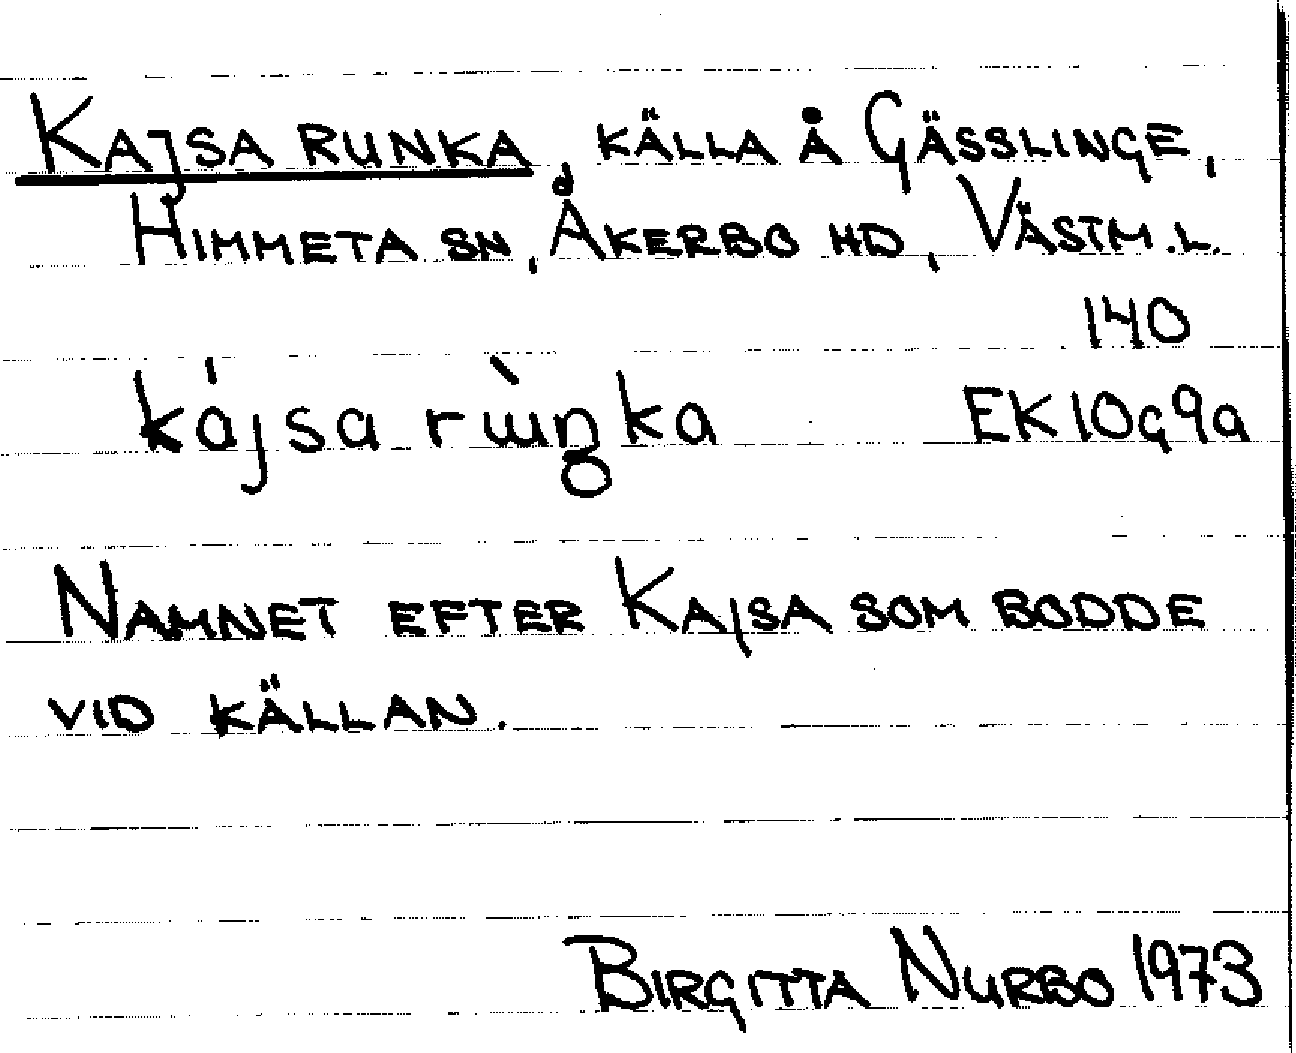 Kajsa runka, källa å Gässlinge,
Himmeta sn, Åkerbo hd, Västm.l.
140
kájsa rɯ̀ŋka EK10G9a
Namnet efter Kajsa som bodde
vid källan.
Birgitta Nurbo 1973